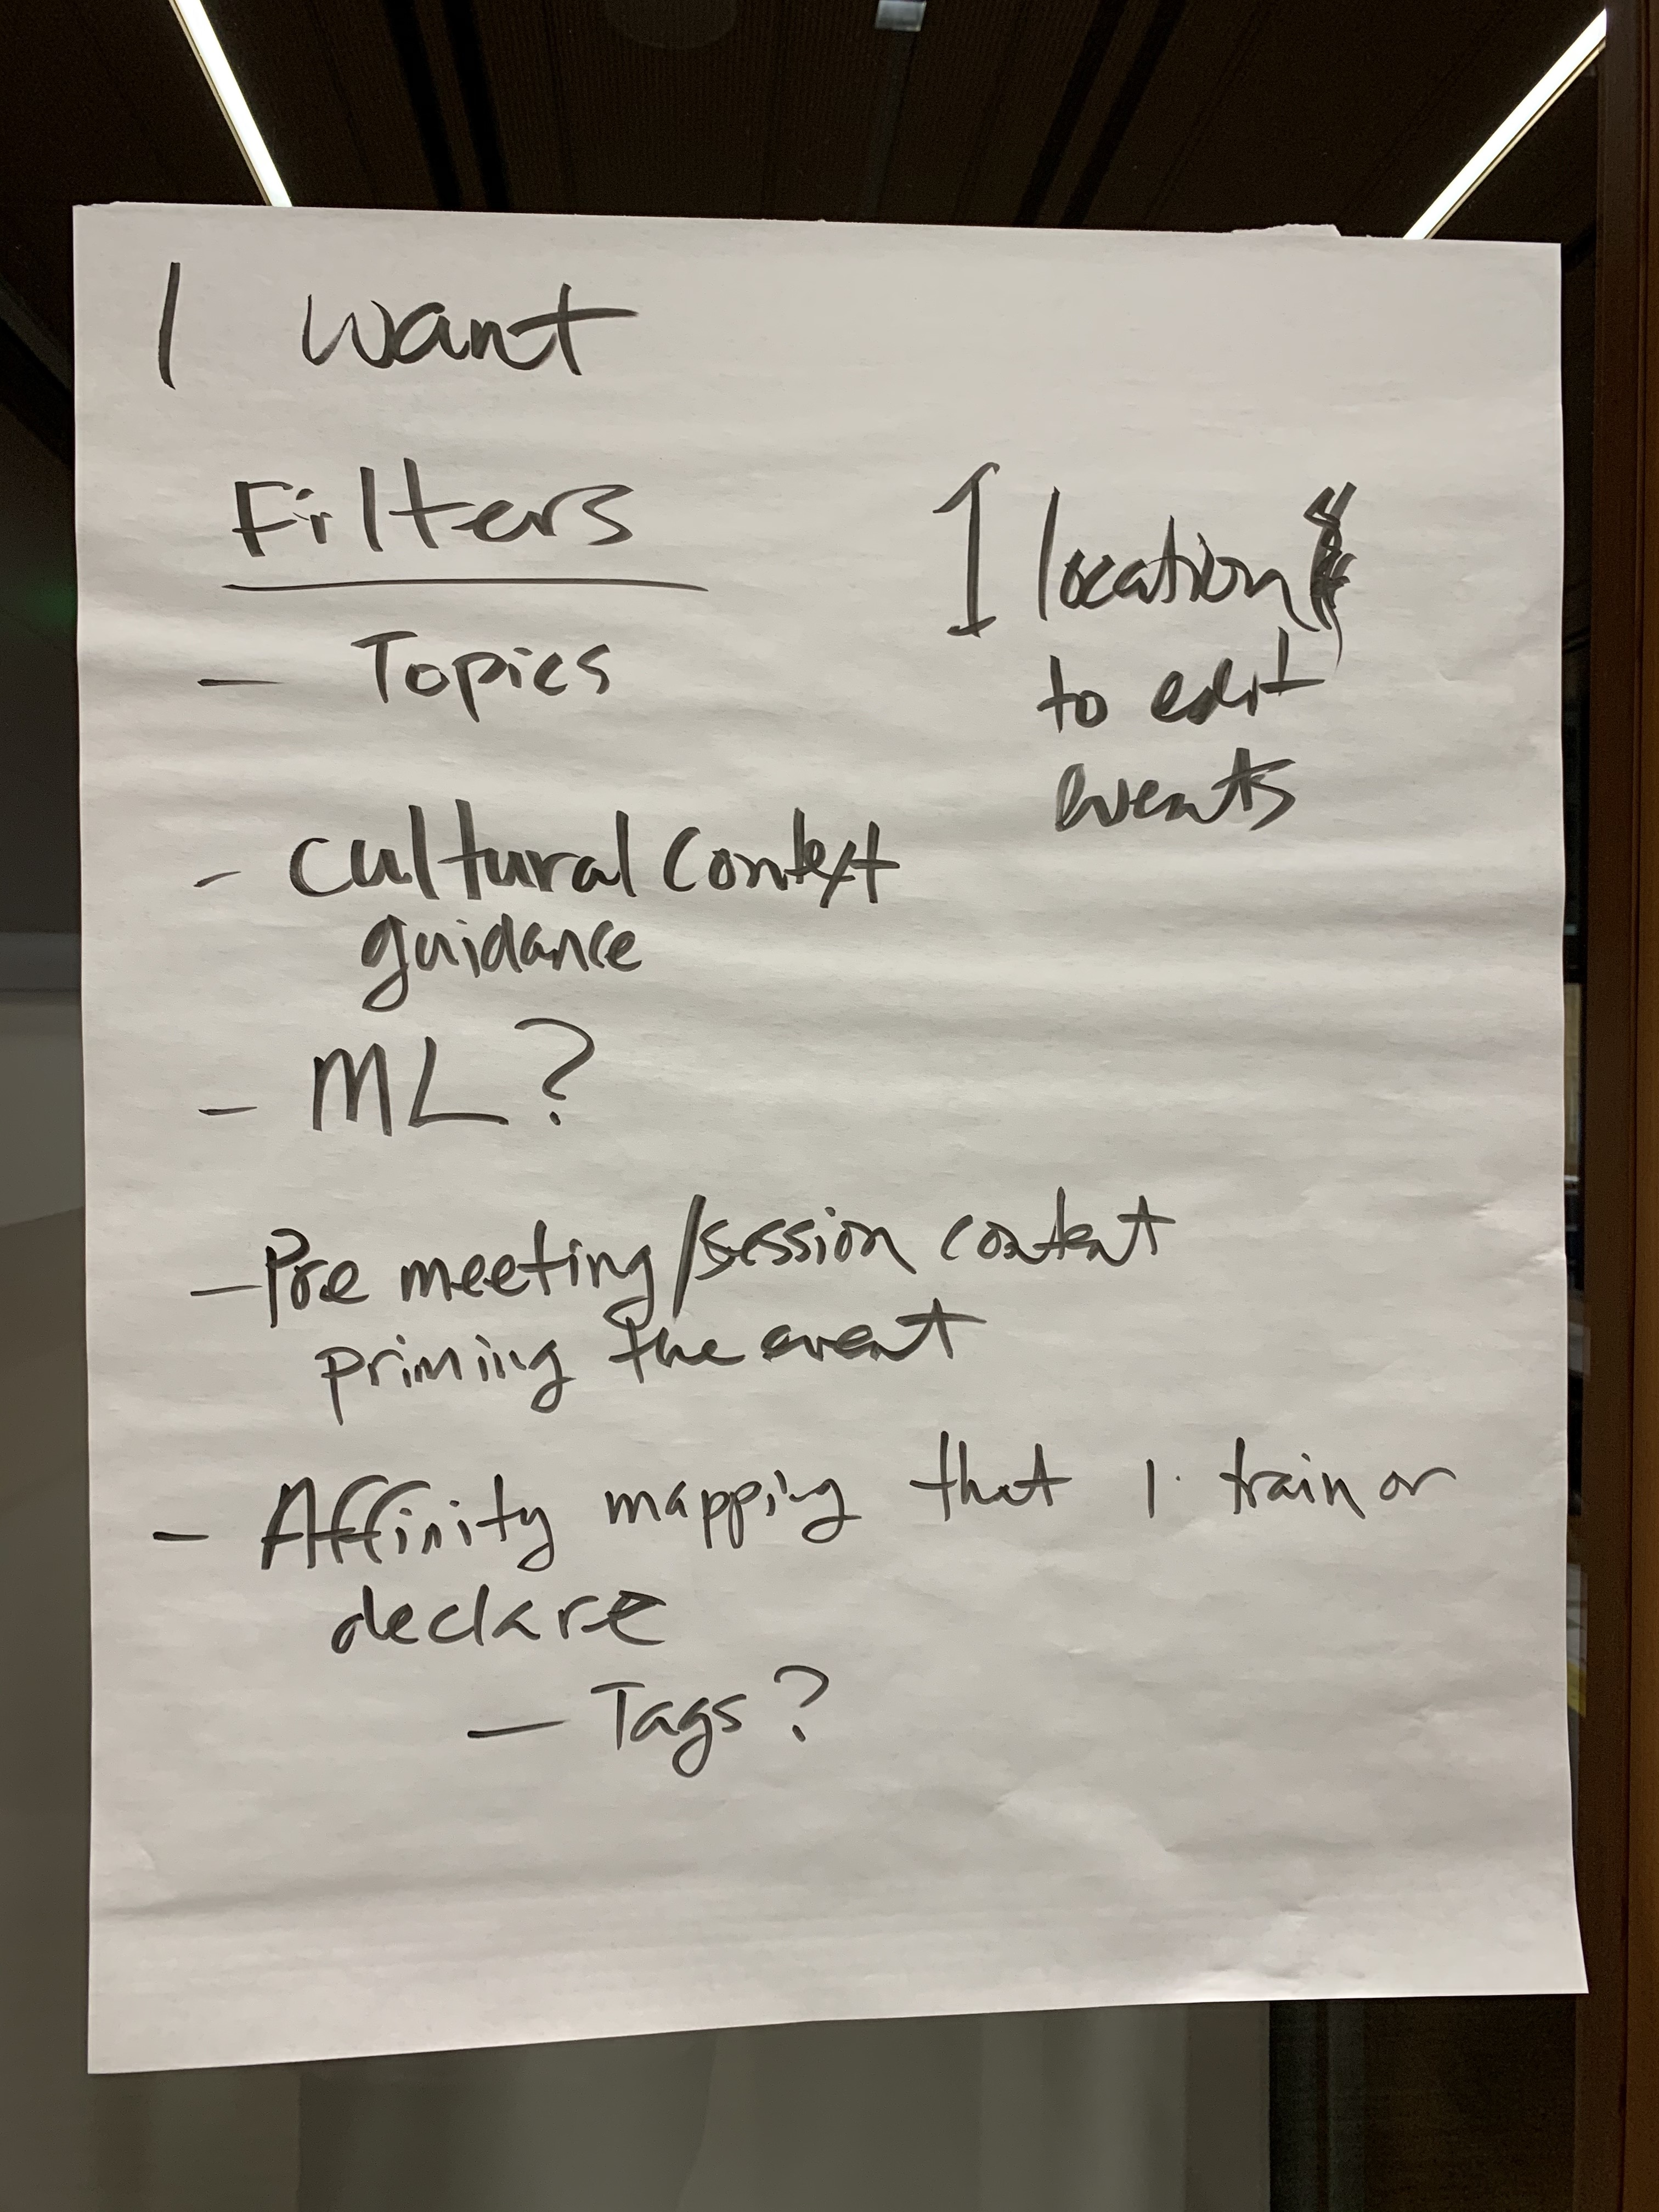 I want
Filters
- Topics
- Cultural Context
guidance
- ML?
- Pre meeting/session content
priming the event
- Affinity mapping that I train or
declare
- Tags?
1 location
to edit
events